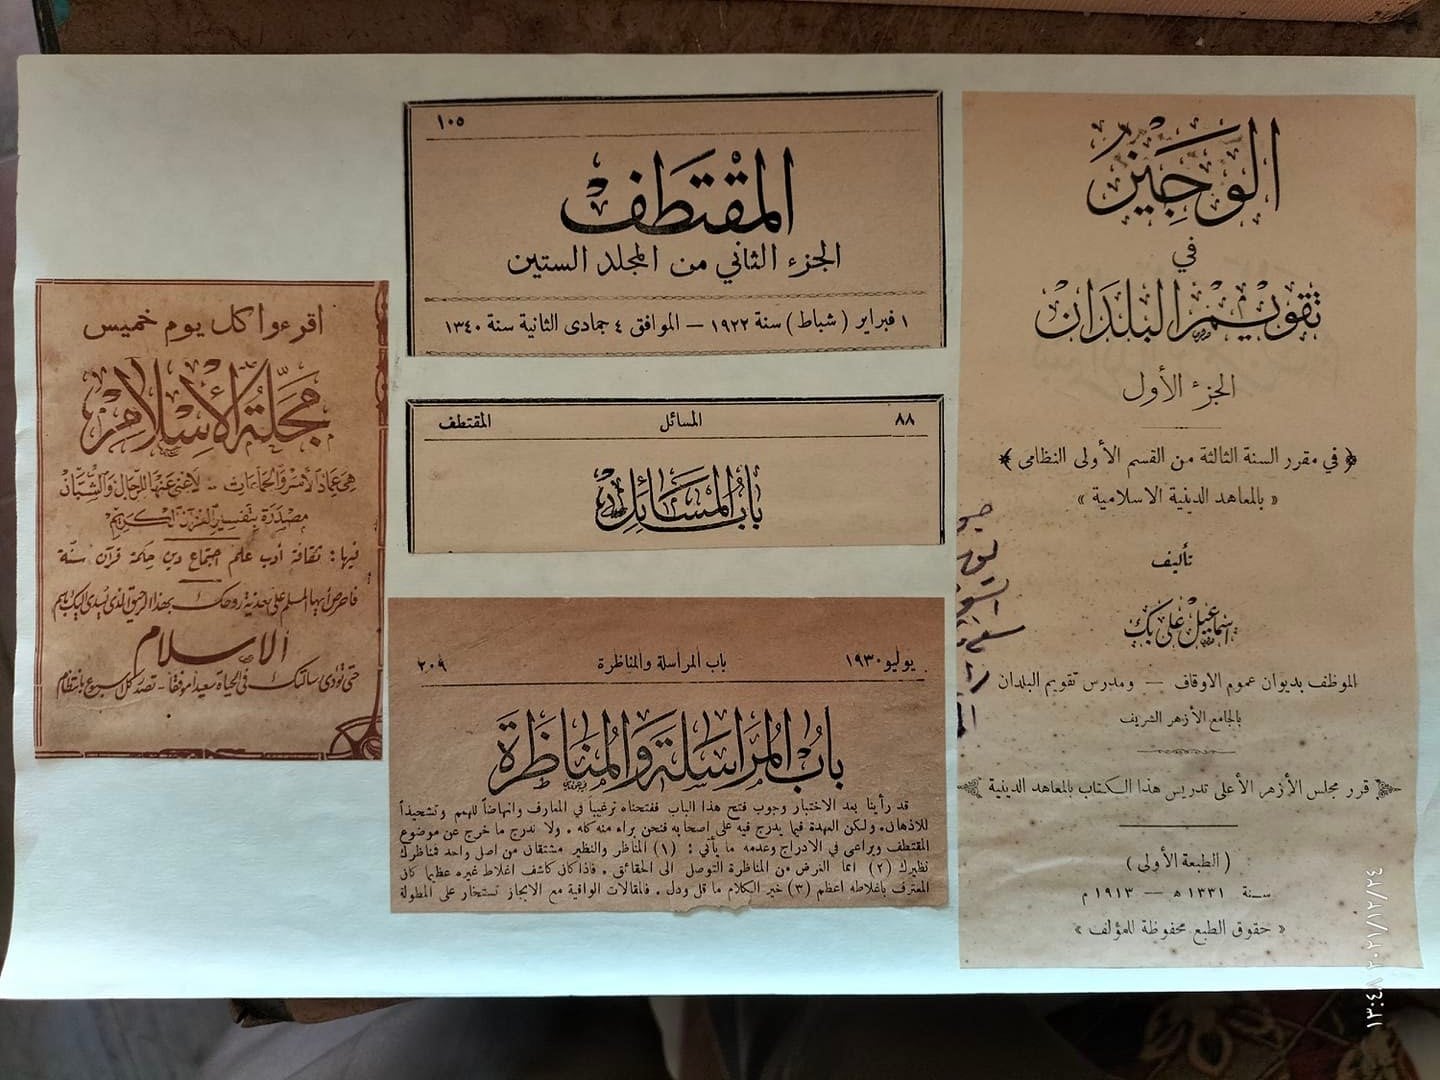 الوجيز
في
تقويم البلدان
الجزء الأول
﴿ في مقرر السنة الثالثة من القسم الأولى النظامى ﴾
« بالمعاهد الدينية الاسلامية »
تأليف
اسماعيل على بك
الموظف بديوان عموم الاوقاف — ومدرس تقويم البلدان
بالجامع الأزهر الشريف
قرر مجلس الأزهر الأعلى تدريس هذا الكتاب بالمعاهد الدينية
( الطبعة الأولى )
سنة ١٣٣١ ه — ١٩١٣ م
« حقوق الطبع محفوظة للمؤلف »
١٠٥
المقتطف
الجزء الثاني من المجلد الستين
١ فبراير ( شباط ) سنة ١٩٢٢ — الموافق ٤ جمادى الثانية سنة ١٣٤٠
٨٨ المسائل المقتطف
باب المسائل
يوليو ١٩٣٠ باب المراسلة والمناظرة ٢٠٩
باب المراسلة والمناظرة
قد رأينا بعد الاختبار وجوب فتح هذا الباب ففتحناه ترغيباً في المعارف وانهاضاً للهمم وتشحيذاً
للاذهان. ولكن العهدة فيما يدرج فيه على اصحابه فنحن براء منه كله . ولا ندرج ما خرج عن موضوع
المقتطف ويراعى في الادراج وعدمه ما يأتي : (١) المناظر والنظير مشتقان من اصل واحد فمناظرك
نظيرك (٢) انما الغرض من المناظرة التوصل الى الحقائق . فاذا كان كاشف اغلاط غيره عظيما كان
المعترف باغلاطه اعظم (٣) خير الكلام ما قل ودل . فالمقالات الوافية مع الايجاز تستخار على المطولة
اقرءوا كل يوم خميس
مجلة الإسلام
هي عماد الأسر والجماعات - لا غنى عنها للرجال والشبان
مصدرة بتفسير القرآن الكريم
فيها : ثقافة أدب علم اجتماع دين حكمة قرآن سنة
فاحرص أيها المسلم على تغذية روحك بهذا الرحيق الذى يسدى إليك باسم
الاسلام
حتى تؤدى رسالتك في الحياة سعيداً موفقا - تصدر كل أسبوع بانتظام
١٣:٤٨ ٢٠٢١/١٢/٢٤